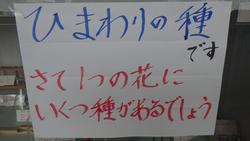 ひまわりの種
です
さて1つの花に
いくつ種があるでしょう